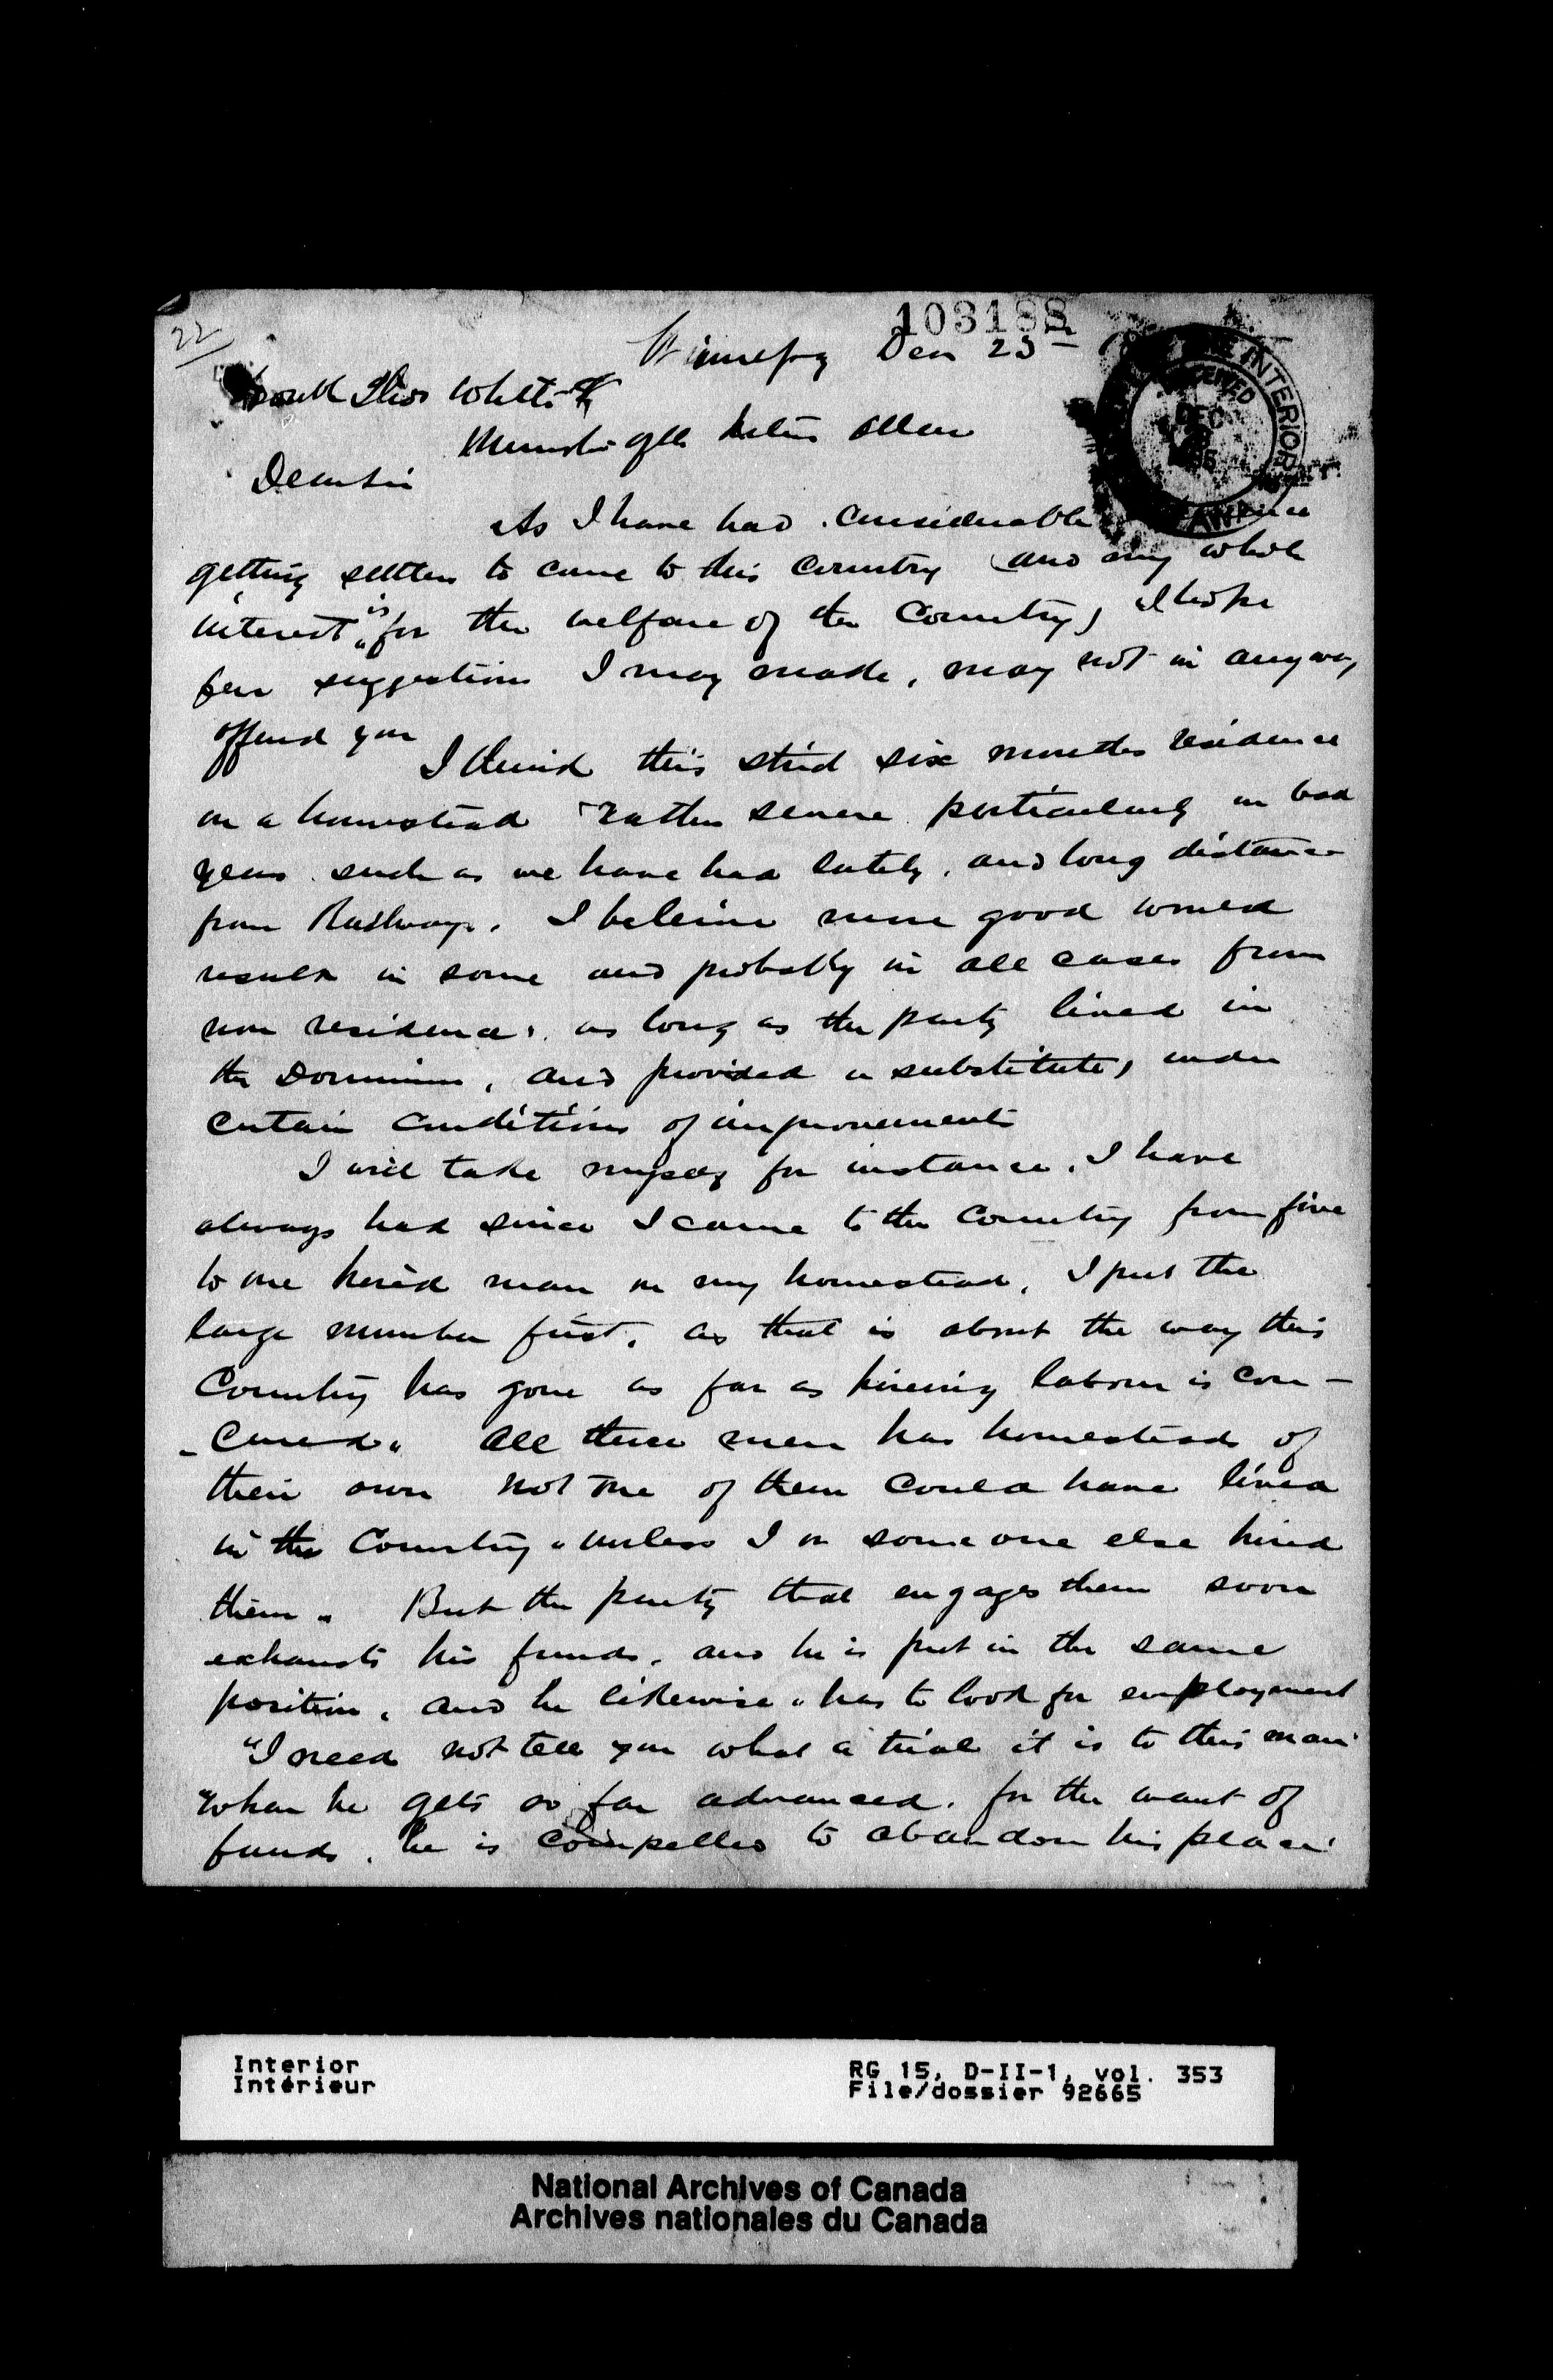 103188
22
Winnipeg Dec 23
Thos White
Minister of the Interior
Dear Sir
INTERIOR
RECEIVED
DEC
As I have had considerable
getting settlers to come to this Country (and my whole
interest is for the welfare of the Country) I hope
few suggestions I may made, may not in anyway
offend you
I think this strid six months residence
on a homestead rather severe particularly in bad
years such as we have had lately, and long distance
from Railways. I beleive more good would
result in some and probably in all cases from
non residence, as long as the party lived in
the Dominion, and provided a substitute, under
certain conditions of improvements
I will take myself for instance. I have
always had since I came to the Country from five
to one hired man on my homestead, I put the
large number first, as that is about the way this
Country has gone as far as hireing labour is con-
-cerned. All these men has homesteads of
their own not one of them could have lived
in the Country unless I or some one else hired
them. But the party that engages them soon
exhausts his funds, and he is put in the same
position, and he likewise has to look for employment
"I need not tell you what a trial it is to this man
"when he gets so far advanced, for the want of
funds, he is compelled to abandon his place
Interior
Intérieur
RG 15, D-II-1, vol. 353
File/dossier 92665
National Archives of Canada
Archives nationales du Canada